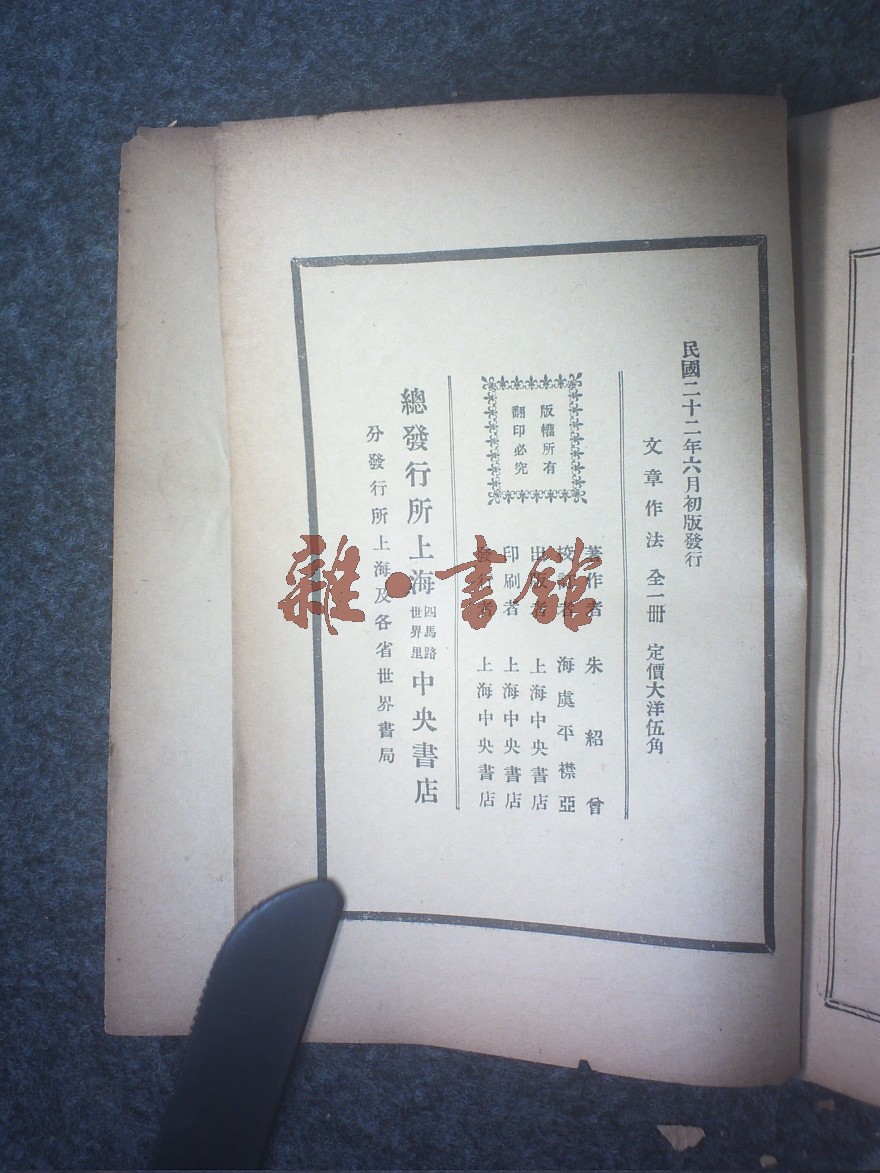 民國二十二年六月初版發行
文章作法　全一冊　定價大洋伍角
版權所有
翻印必究
著作者　朱紹曾
校訂者　海虞平襟亞
出版者　上海中央書店
印刷者　上海中央書店
發行者　上海中央書店
總發行所上海四馬路世界里中央書店
分發行所上海及各省世界書局
雜·書館